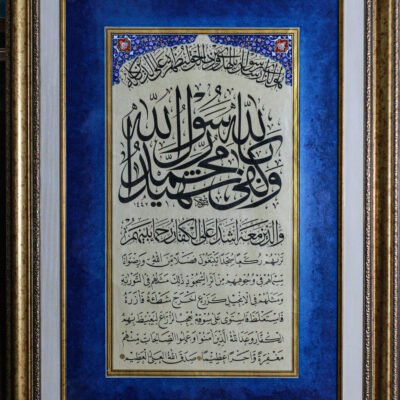 هو الذي أرسل رسوله بالهدى ودين الحق ليظهره على الدين كله
وكفى بالله شهيدا محمد رسول الله
١٤٤٢
والذين معه أشداء على الكفار رحماء بينهم
تريهم ركعا سجدا يبتغون فضلا من الله ورضوانا
سيماهم في وجوههم من أثر السجود ذلك مثلهم في التورية
ومثلهم في الإنجيل كزرع أخرج شطئه فآزره
فاستغلظ فاستوى على سوقه يعجب الزراع ليغيظ بهم
الكفار وعد الله الذين آمنوا وعملوا الصالحات منهم
مغفرة وأجرا عظيما * صدق الله العلي العظيم *